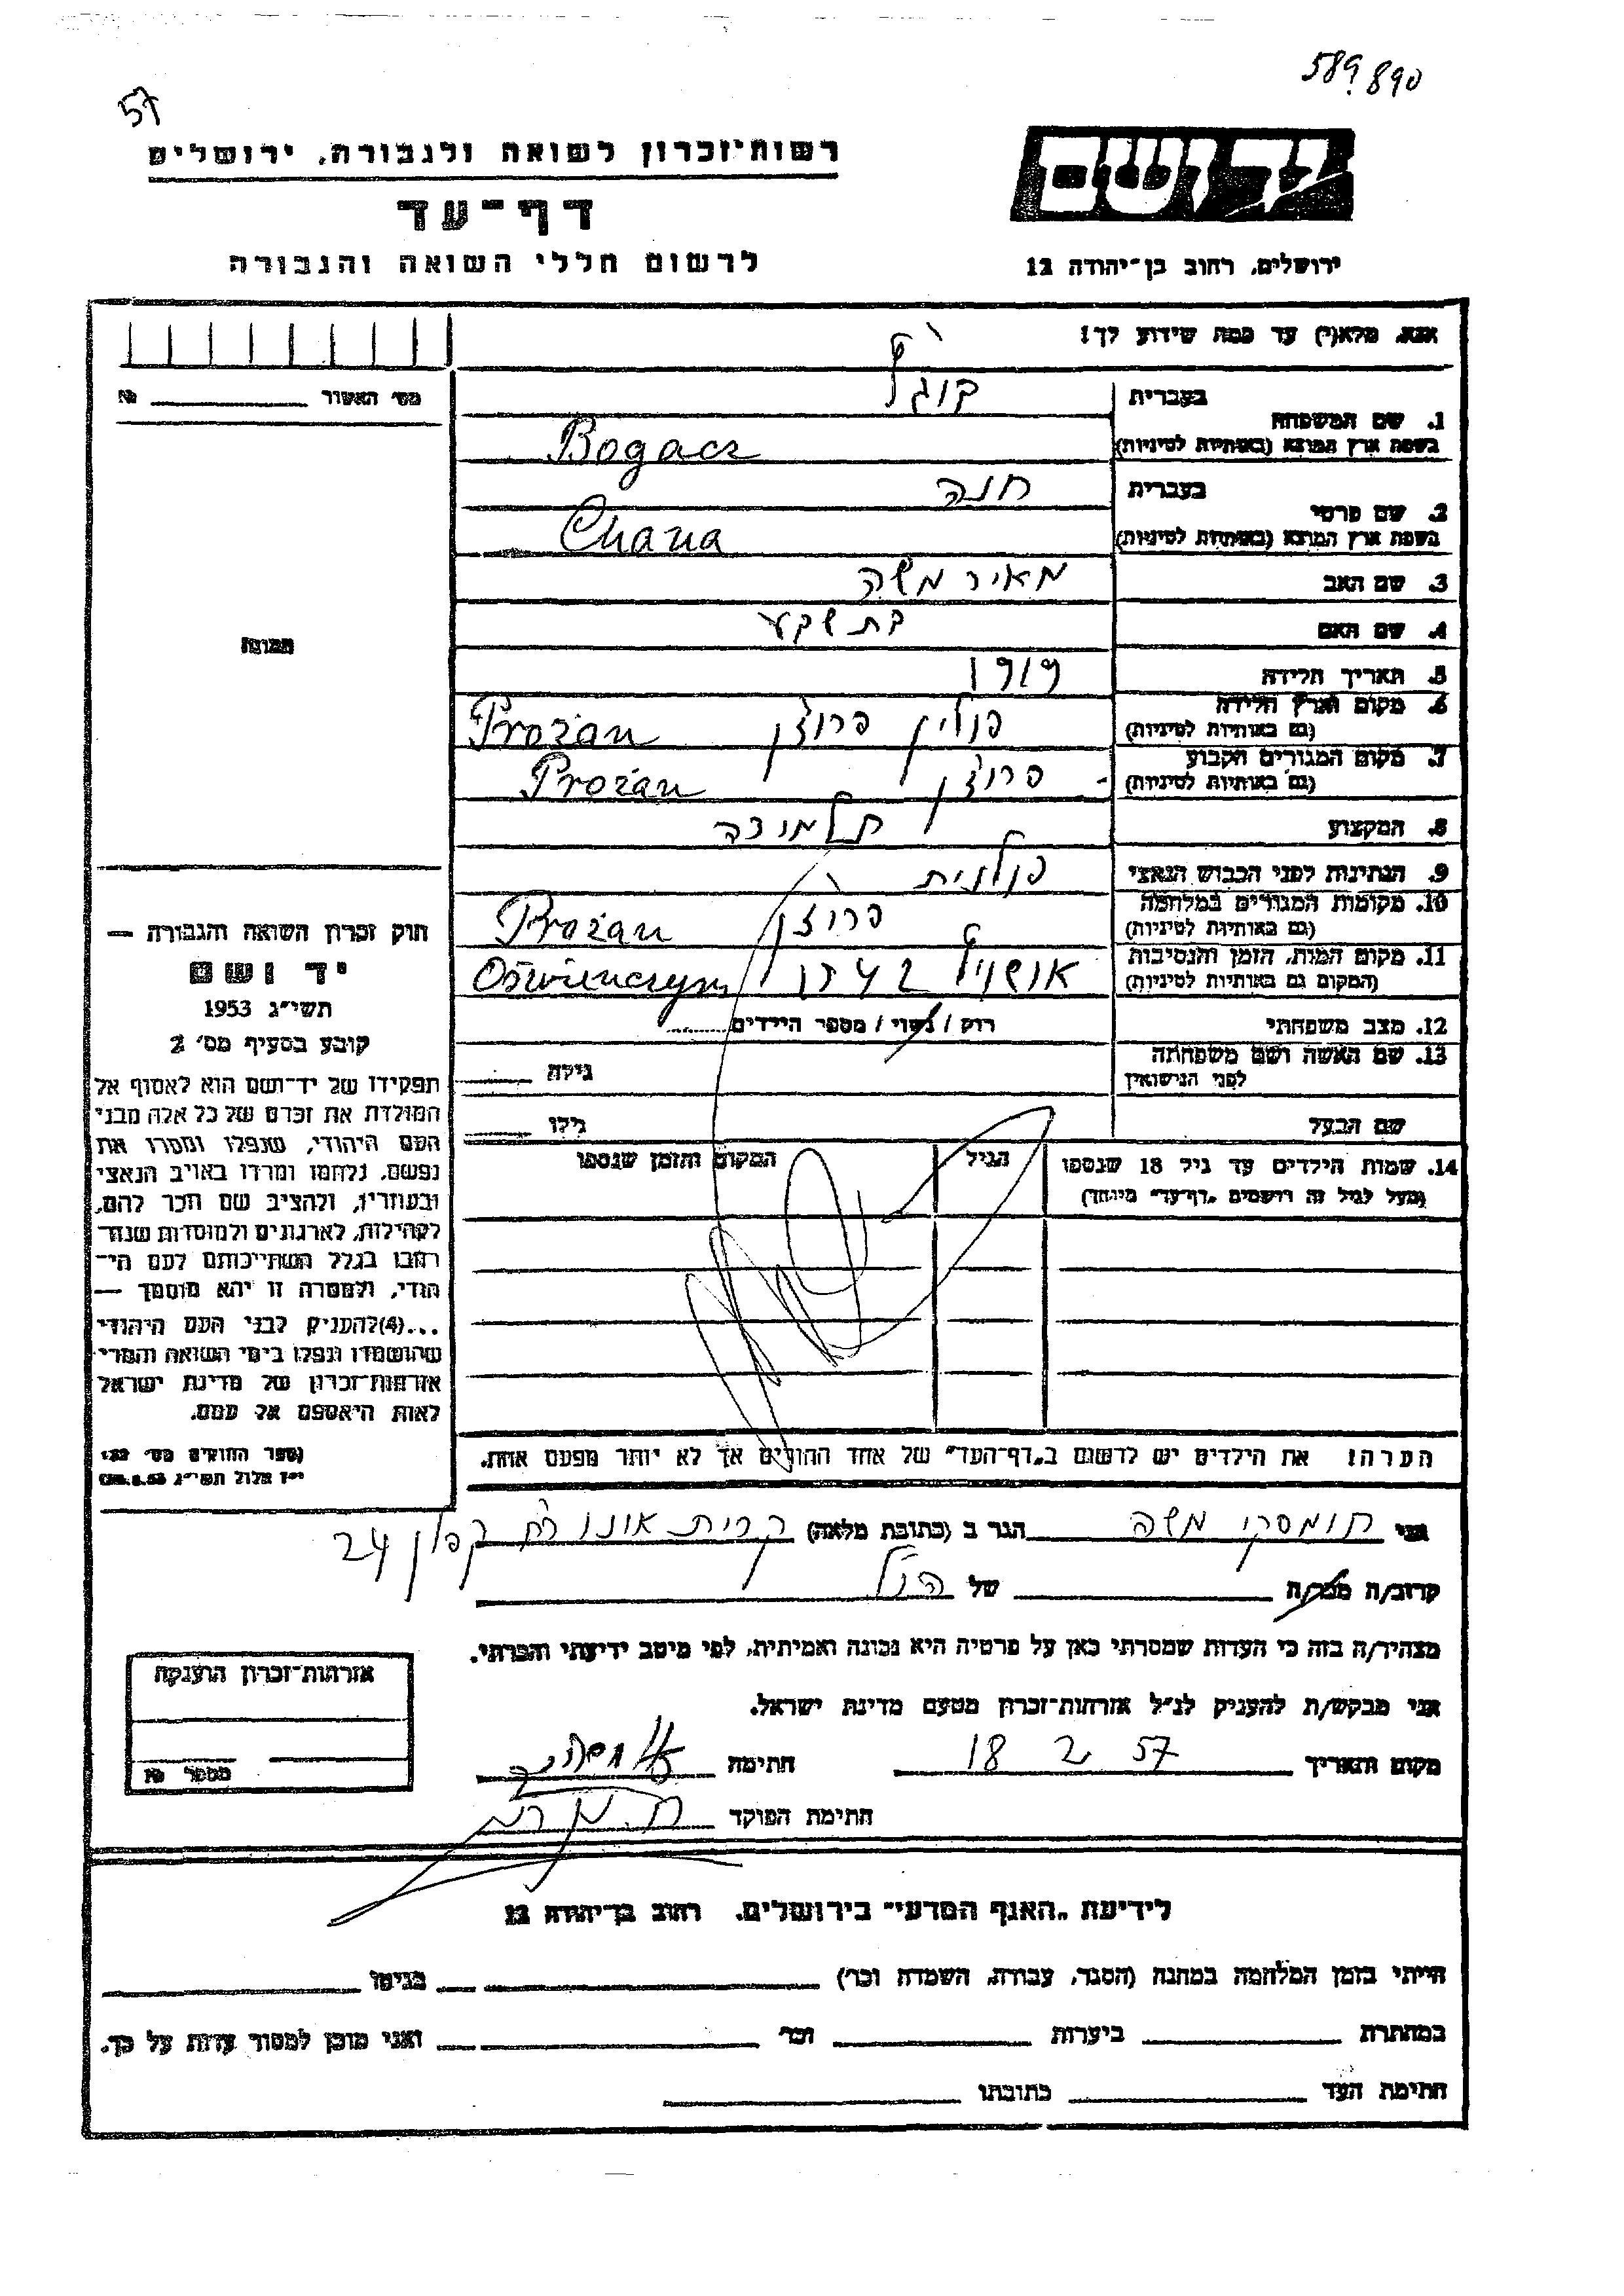 589890
57
יד ושם
רשות־זכרון לשואה ולגבורה, ירושלים
דף־עד
לרשום חללי השואה והגבורה
ירושלים, רחוב בן־יהודה 12
אנא, מלא(י) עד כמה שידוע לך!
מס׳ האשור № 
תמונה
1. שם המשפחה
בעברית
בשפת ארץ המוצא (באותיות לטיניות)
Bogacz
2. שם פרטי
בעברית חנה
בשפת ארץ המוצא (באותיות לטיניות)
Chana
3. שם האב מאיר משה
4. שם האם בת שבע
5. תאריך הלידה 1919
6. מקום וארץ הלידה
(גם באותיות לטיניות)
פולין פרוז׳ן Prożan
7. מקום המגורים הקבוע
(גם באותיות לטיניות)
פרוז׳ן Prożan
8. המקצוע תלמידה
9. הנתינות לפני הכבוש הנאצי פולנית
10. מקומות המגורים במלחמה
(גם באותיות לטיניות)
פרוז׳ן Prożan
11. מקום המות, הזמן והנסיבות
(המקום גם באותיות לטיניות)
אושויץ Oświenczym
12. מצב משפחתי רוק / נשוי / מספר הילדים
13. שם האשה ושם משפחתה
לפני הנישואין
גילה
שם הבעל גילו
14. שמות הילדים עד גיל 18 שנספו הגיל המקום והזמן שנספו
(מעל לגיל זה רושמים „דף־עד״ מיוחד)
הערה! את הילדים יש לרשום ב„דף־העד״ של אחד ההורים אך לא יותר מפעם אחת.
חוק זכרון השואה והגבורה —
יד ושם
תשי״ג 1953
קובע בסעיף מס׳ 2
תפקידו של יד־ושם הוא לאסוף אל
המולדת את זכרם של כל אלה מבני
העם היהודי, שנפלו ומסרו את
נפשם, נלחמו ומרדו באויב הנאצי
ובעוזריו, ולהציב שם וזכר להם,
לקהילות, לארגונים ולמוסדות שנח־
רבו בגלל השתייכותם לעם הי־
הודי, ולמטרה זו יהא מוסמך —
...(4) להעניק לבני העם היהודי
שהושמדו ונפלו בימי השואה והמרי
אזרחות־זכרון של מדינת ישראל
לאות היאספם אל עמם.
(ספר החוקים מס׳ 132
י״ז אלול תשי״ג 28.8.53)
אני חומסקי משה הגר ב (כתובת מלאה) קרית אונו רח קפלן 24
קרוב/ה מכר/ה של הנ״ל
מצהיר/ה בזה כי העדות שמסרתי כאן על פרטיה היא נכונה ואמיתית, לפי מיטב ידיעתי והכרתי.
אני מבקש/ת להעניק לנ״ל אזרחות־זכרון מטעם מדינת ישראל.
מקום ותאריך 18 2 57 חתימה
חתימת הפוקד
אזרחות־זכרון הוענקה
מספר №
לידיעת „האגף המדעי״ בירושלים, רחוב בן־יהודה 12
הייתי בזמן המלחמה במחנה (הסגר, עבודה, השמדה וכו׳) בגיטו
במחתרת ביערות וכו׳ ואני מוכן למסור עדות על כך.
חתימת העד כתובתו